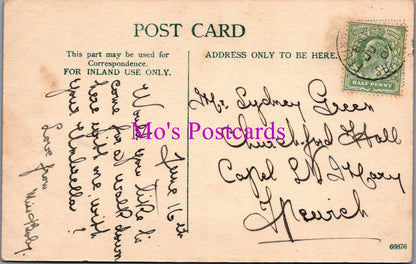 POST CARD
This part may be used for
Correspondence.
FOR INLAND USE ONLY.
ADDRESS ONLY TO BE HERE.
HALF PENNY
June 16th
Would you like to
come for a walk down
here with me with
your Umbrella?
Love from
Mr. Sydney Green
Churchford Hall
Capel St Mary
Ipswich
Mo's Postcards
66876